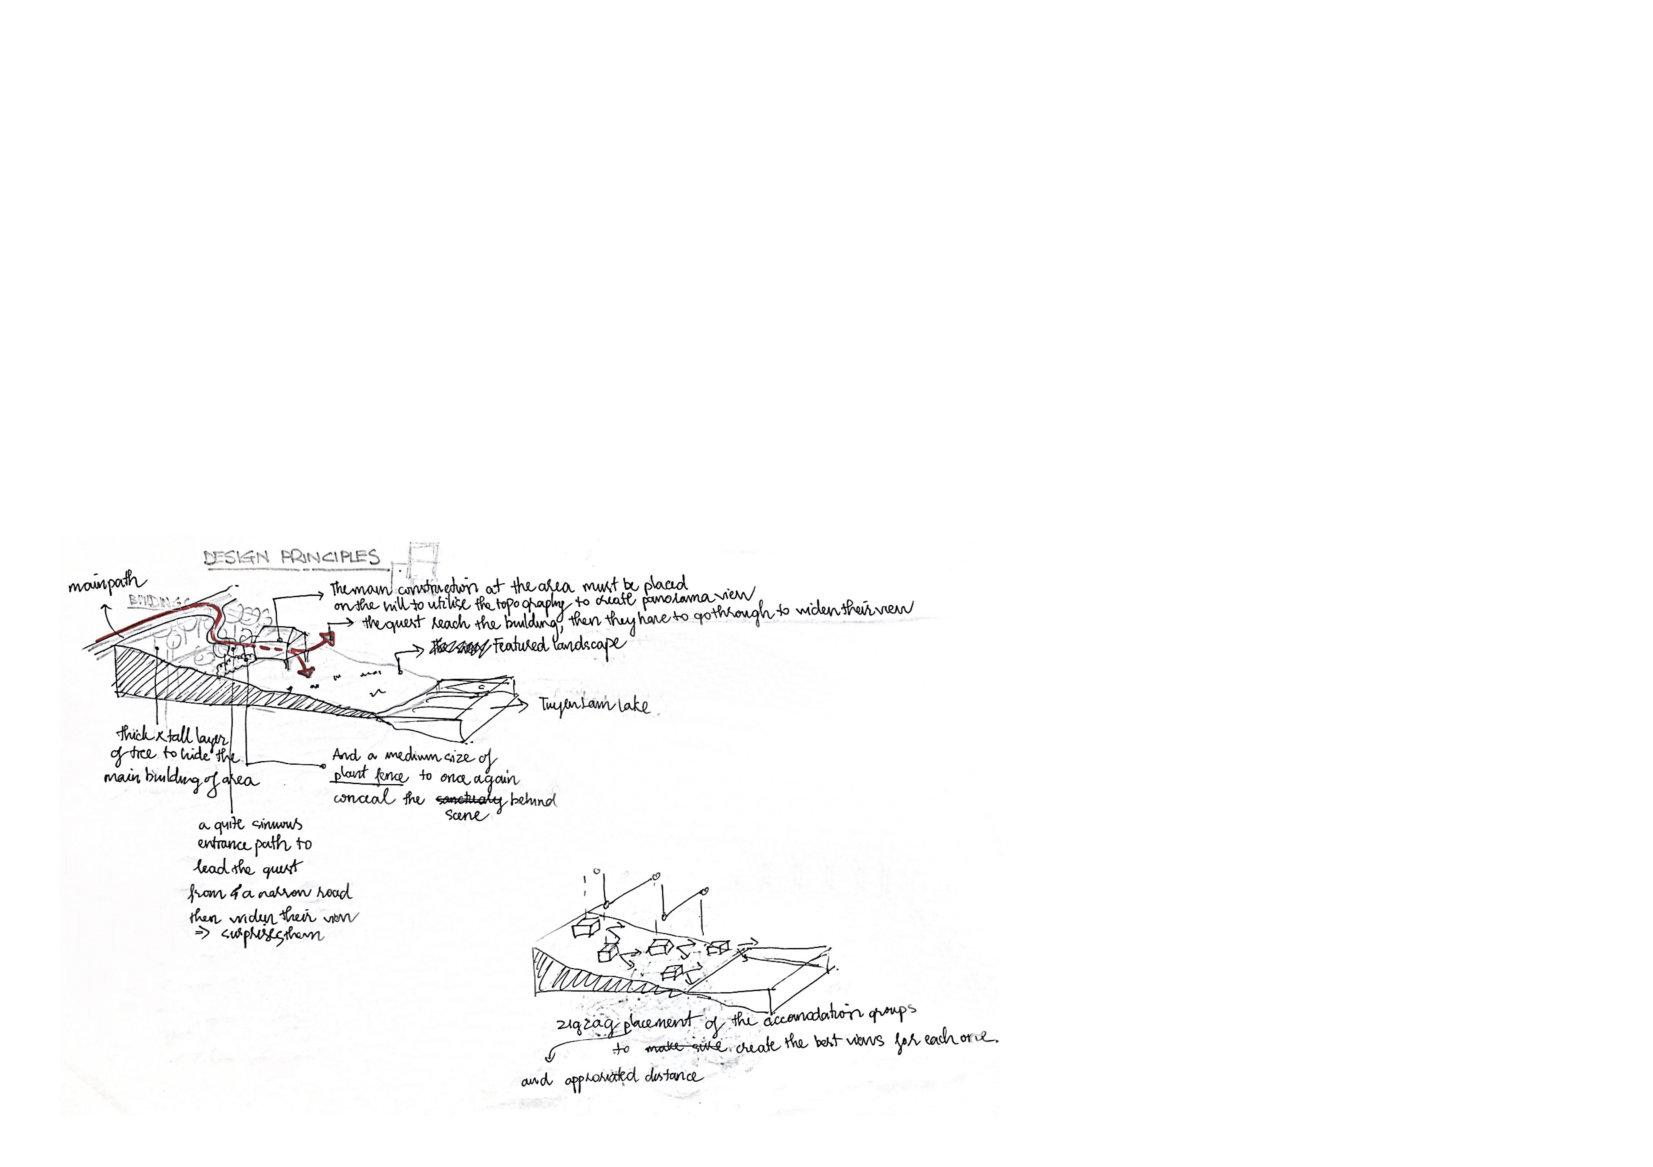 DESIGN PRINCIPLES
main path
BUILDING
The main construction at the area must be placed
on the hill to utilise the topography to create panorama view
the quest reach the building, then they have to go through to widen their view
Featured landscape
Tuyen Lam lake.
thick & tall layer
of tree to hide the
main building of area
And a medium size of
plant fence to once again
conceal the sanctualy behind
scene
a quite sinuous
entrance path to
lead the quest
from a narrow road
then widen their view
=> surprises them
zigzag placement of the accomodation groups
to make sure create the best views for each one.
and distance